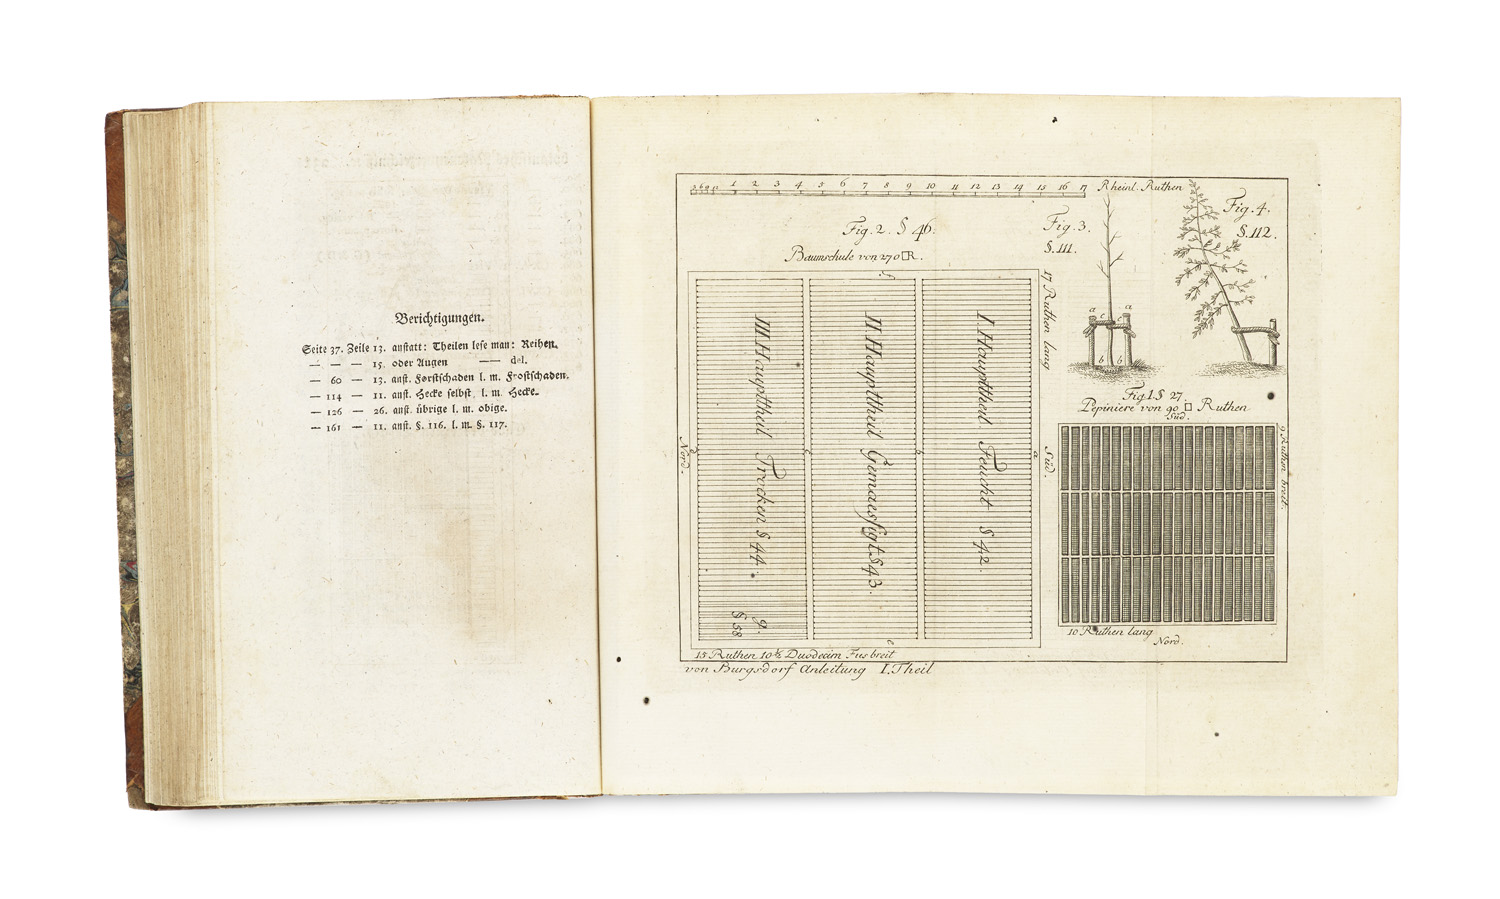 Berichtigungen.
Seite 37. Zeile 13. anstatt: Theilen lese man: Reihen.
— — — 15. oder Augen —— del.
— 60 — 13. anst. Forstschaden l. m. Frostschaden.
— 114 — 11. anst. Hecke selbst l. m. Hecke.
— 126 — 26. anst. übrige l. m. obige.
— 161 — 11. anst. §. 116. l. m. §. 117.
3 6 9 0 1 2 3 4 5 6 7 8 9 10 11 12 13 14 15 16 17 Rheinl. Ruthen
Fig. 2. § 46.
Baumschule von 270 □R.
Fig. 3.
§. 111.
Fig. 4.
§. 112.
a a
c c
b b
f
17 Ruthen lang
Süd.
Nord.
III. Haupttheil Trocken § 44.
II. Haupttheil Gemaessigt § 43.
I. Haupttheil. Feucht § 42.
c
b
a
g.
§ 58
e
15 Ruthen 10½ Duodecim Fus breit
Fig I § 27.
Pepiniere von 90 □ Ruthen
Süd.
9 Ruthen breit.
10 Ruthen lang
Nord.
von Burgsdorf Anleitung I. Theil